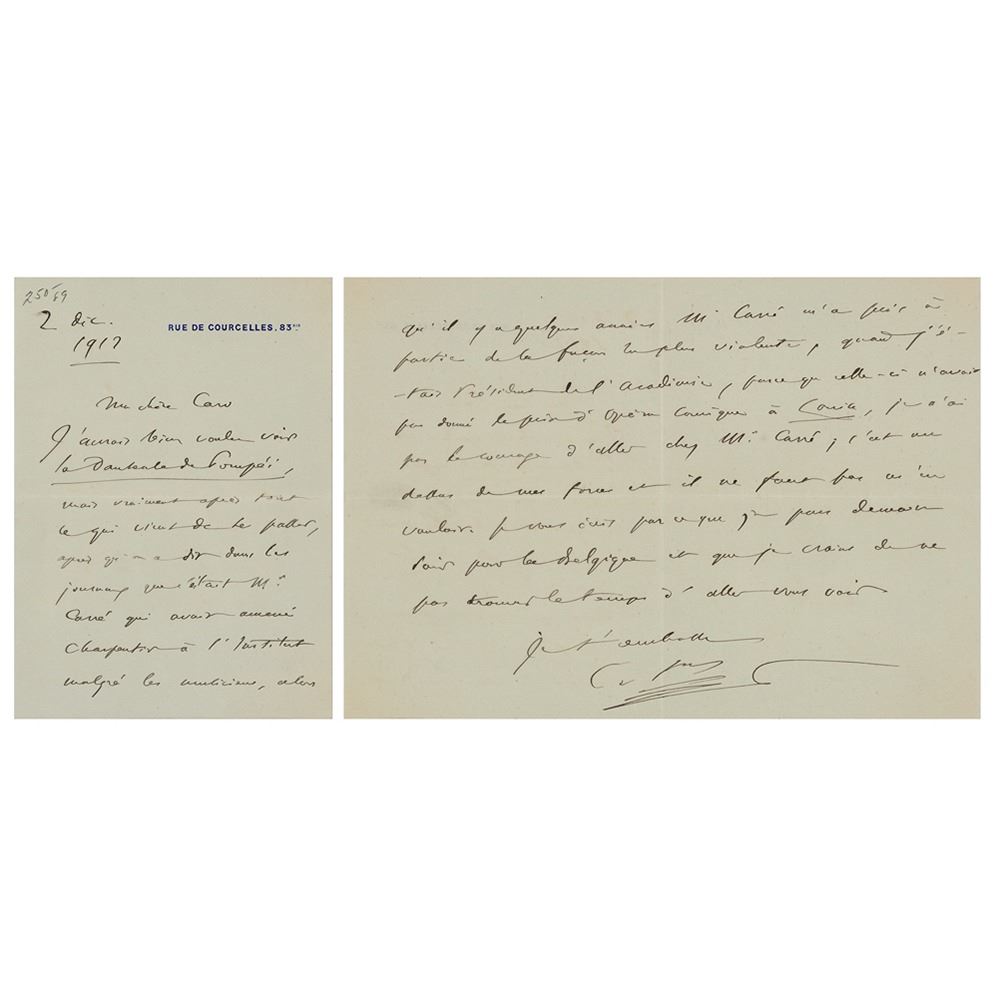 250/59
2 dic.
1912
RUE DE COURCELLES, 83 BIS.
Ma chère Caro
J'aurais bien voulu voir
la Danseuse de Pompéi,
mais vraiment après tout
ce qui vient de se passer,
après qu'on a dit dans les
journaux que c'était Mr.
Carré qui avait amené
Charpentier à l'Institut
malgré les musiciens, alors
qu'il y a quelques années Mr Carré m'a pris à
partie de la façon la plus violente, quand j'é-
-tais Président de l'Académie, parce que celle-ci n'avait
pas donné le prix d'Opéra Comique à Louise, je n'ai
pas le courage d'aller chez Mr. Carré; c'est au
dessus de mes forces et il ne faut pas m'en
vouloir. Je vous écris parce que je pars demain
soir pour la Belgique et que je crains de ne
pas trouver le temps d'aller vous voir
Je t'embrasse
C.